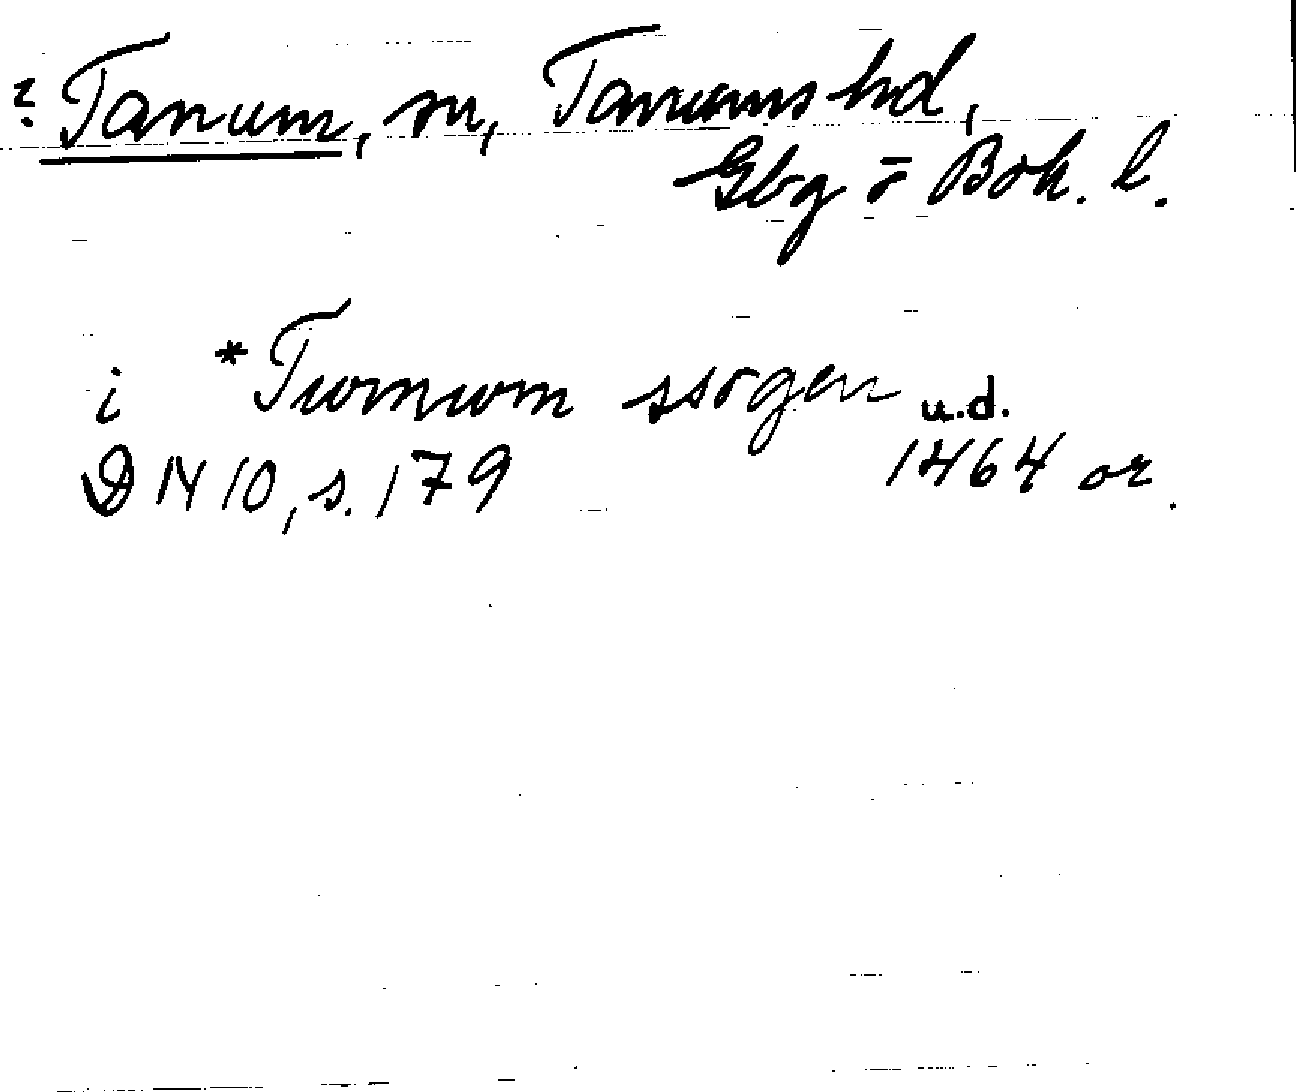 ? Tanum, sn, Tanums hd,
Gbg o Boh. l.
i *Turnum ssogen u.d.
D 14 10, s. 179 1464 or.